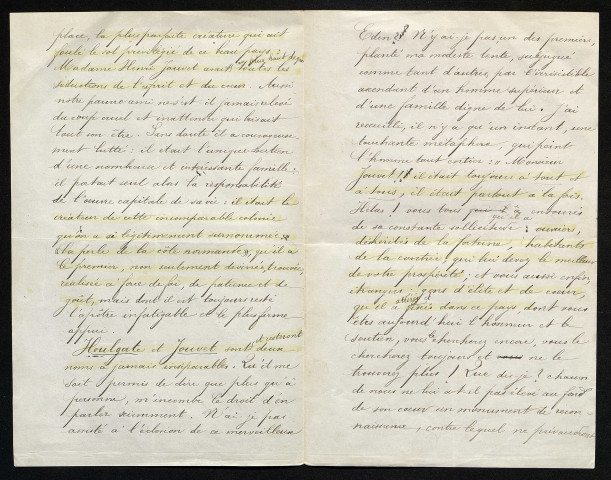 place, la plus parfaite créature qui ait
foulé le sol privilégié de ce beau pays :
Madame Henri Jouvet avait au plus haut degré toutes les
séductions de l'esprit et du cœur. Aussi
notre pauvre ami ne s'est il jamais relevé
du coup cruel et inattendu qui brisait
tout son être. Sans doute il a courageuse-
ment lutté : il était l'unique soutien
d'une nombreuse et intéressante famille :
il portait seul alors la responsabilité
de l'œuvre capitale de sa vie : il était le
créateur de cette incomparable colonie
qu'on a si légitimement surnommée :
« la perle de la côte normande », qu'il a
le premier, non seulement devinée, trouvée,
réalisée à force de foi, de patience et de
goût, mais dont il est toujours resté
l'apôtre infatigable et le plus ferme
appui.
Houlgate et Jouvet sont et resteront deux
noms à jamais inséparables. Qu'il me
soit permis de dire que plus qu'à
personne, m'incombe le droit d'en
parler sciemment. N'ai-je pas
assisté à l'éclosion de ce merveilleux
Eden ? N'y ai-je pas, un des premiers,
planté ma modeste tente, subjugué
comme tant d'autres, par l'irrésistible
ascendant d'un homme supérieur et
d'une famille digne de lui. J'ai
recueilli, il n'y a qu'un instant, une
touchante métaphore, qui peint
l'homme tout entier : « Monsieur
Jouvet ! il était toujours à tout et
à tous, il était partout à la fois.
Hélas ! vous tous qu'il a
de sa constante sollicitude : ouvriers,
déshérités de la fortune, habitants
de la contrée qui lui devez le meilleur
de votre prospérité ; et vous aussi enfin,
étrangers, gens d'élite et de cœur,
qu'il a attirés et fixés dans ce pays, dont vous
êtes aujourd'hui l'honneur et le
soutien, vous le cherchez encore, vous le
chercherez toujours et ne le
trouverez plus ! Que dis-je ? chacun
de nous ne lui a-t-il pas élevé au fond
de son cœur un monument de recon-
naissance, contre lequel ne